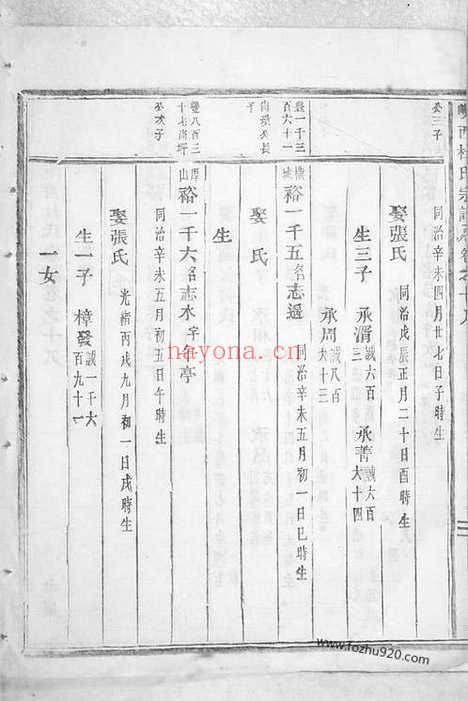 西林氏宗譜
公三子
同治辛未四月廿七日子時生
娶張氏 同治戊辰正月二十日酉時生
生三子 承渭 誠六百 承菁 誠六百六十四
承周 誠八百六十三
一千三百六十一
裕一千五 名志邁 同治辛未五月初一日巳時生
娶 氏
生
八百二十七
裕一千六 名志水 字冬亭
公次子
同治辛未五月初五日午時生
娶張氏 光緒丙戌九月初一日戌時生
生一子 樟發 誠一千六百九十一
一女
nayona.cn
www.fozhu920.com